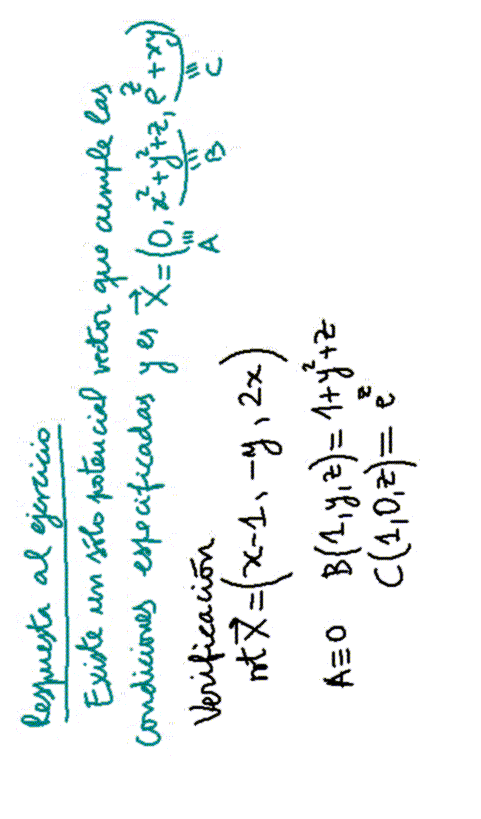 Respuesta al ejercicio
Existe un sólo potencial vector que cumple las
condiciones especificadas y es X⃗=(0, x²+y²+z, e^z+xy)
A B C
Verificación
rot X⃗=(x-1, -y, 2x)
A≡0 B(1,y,z)=1+y²+z
C(1,0,z)=e^z